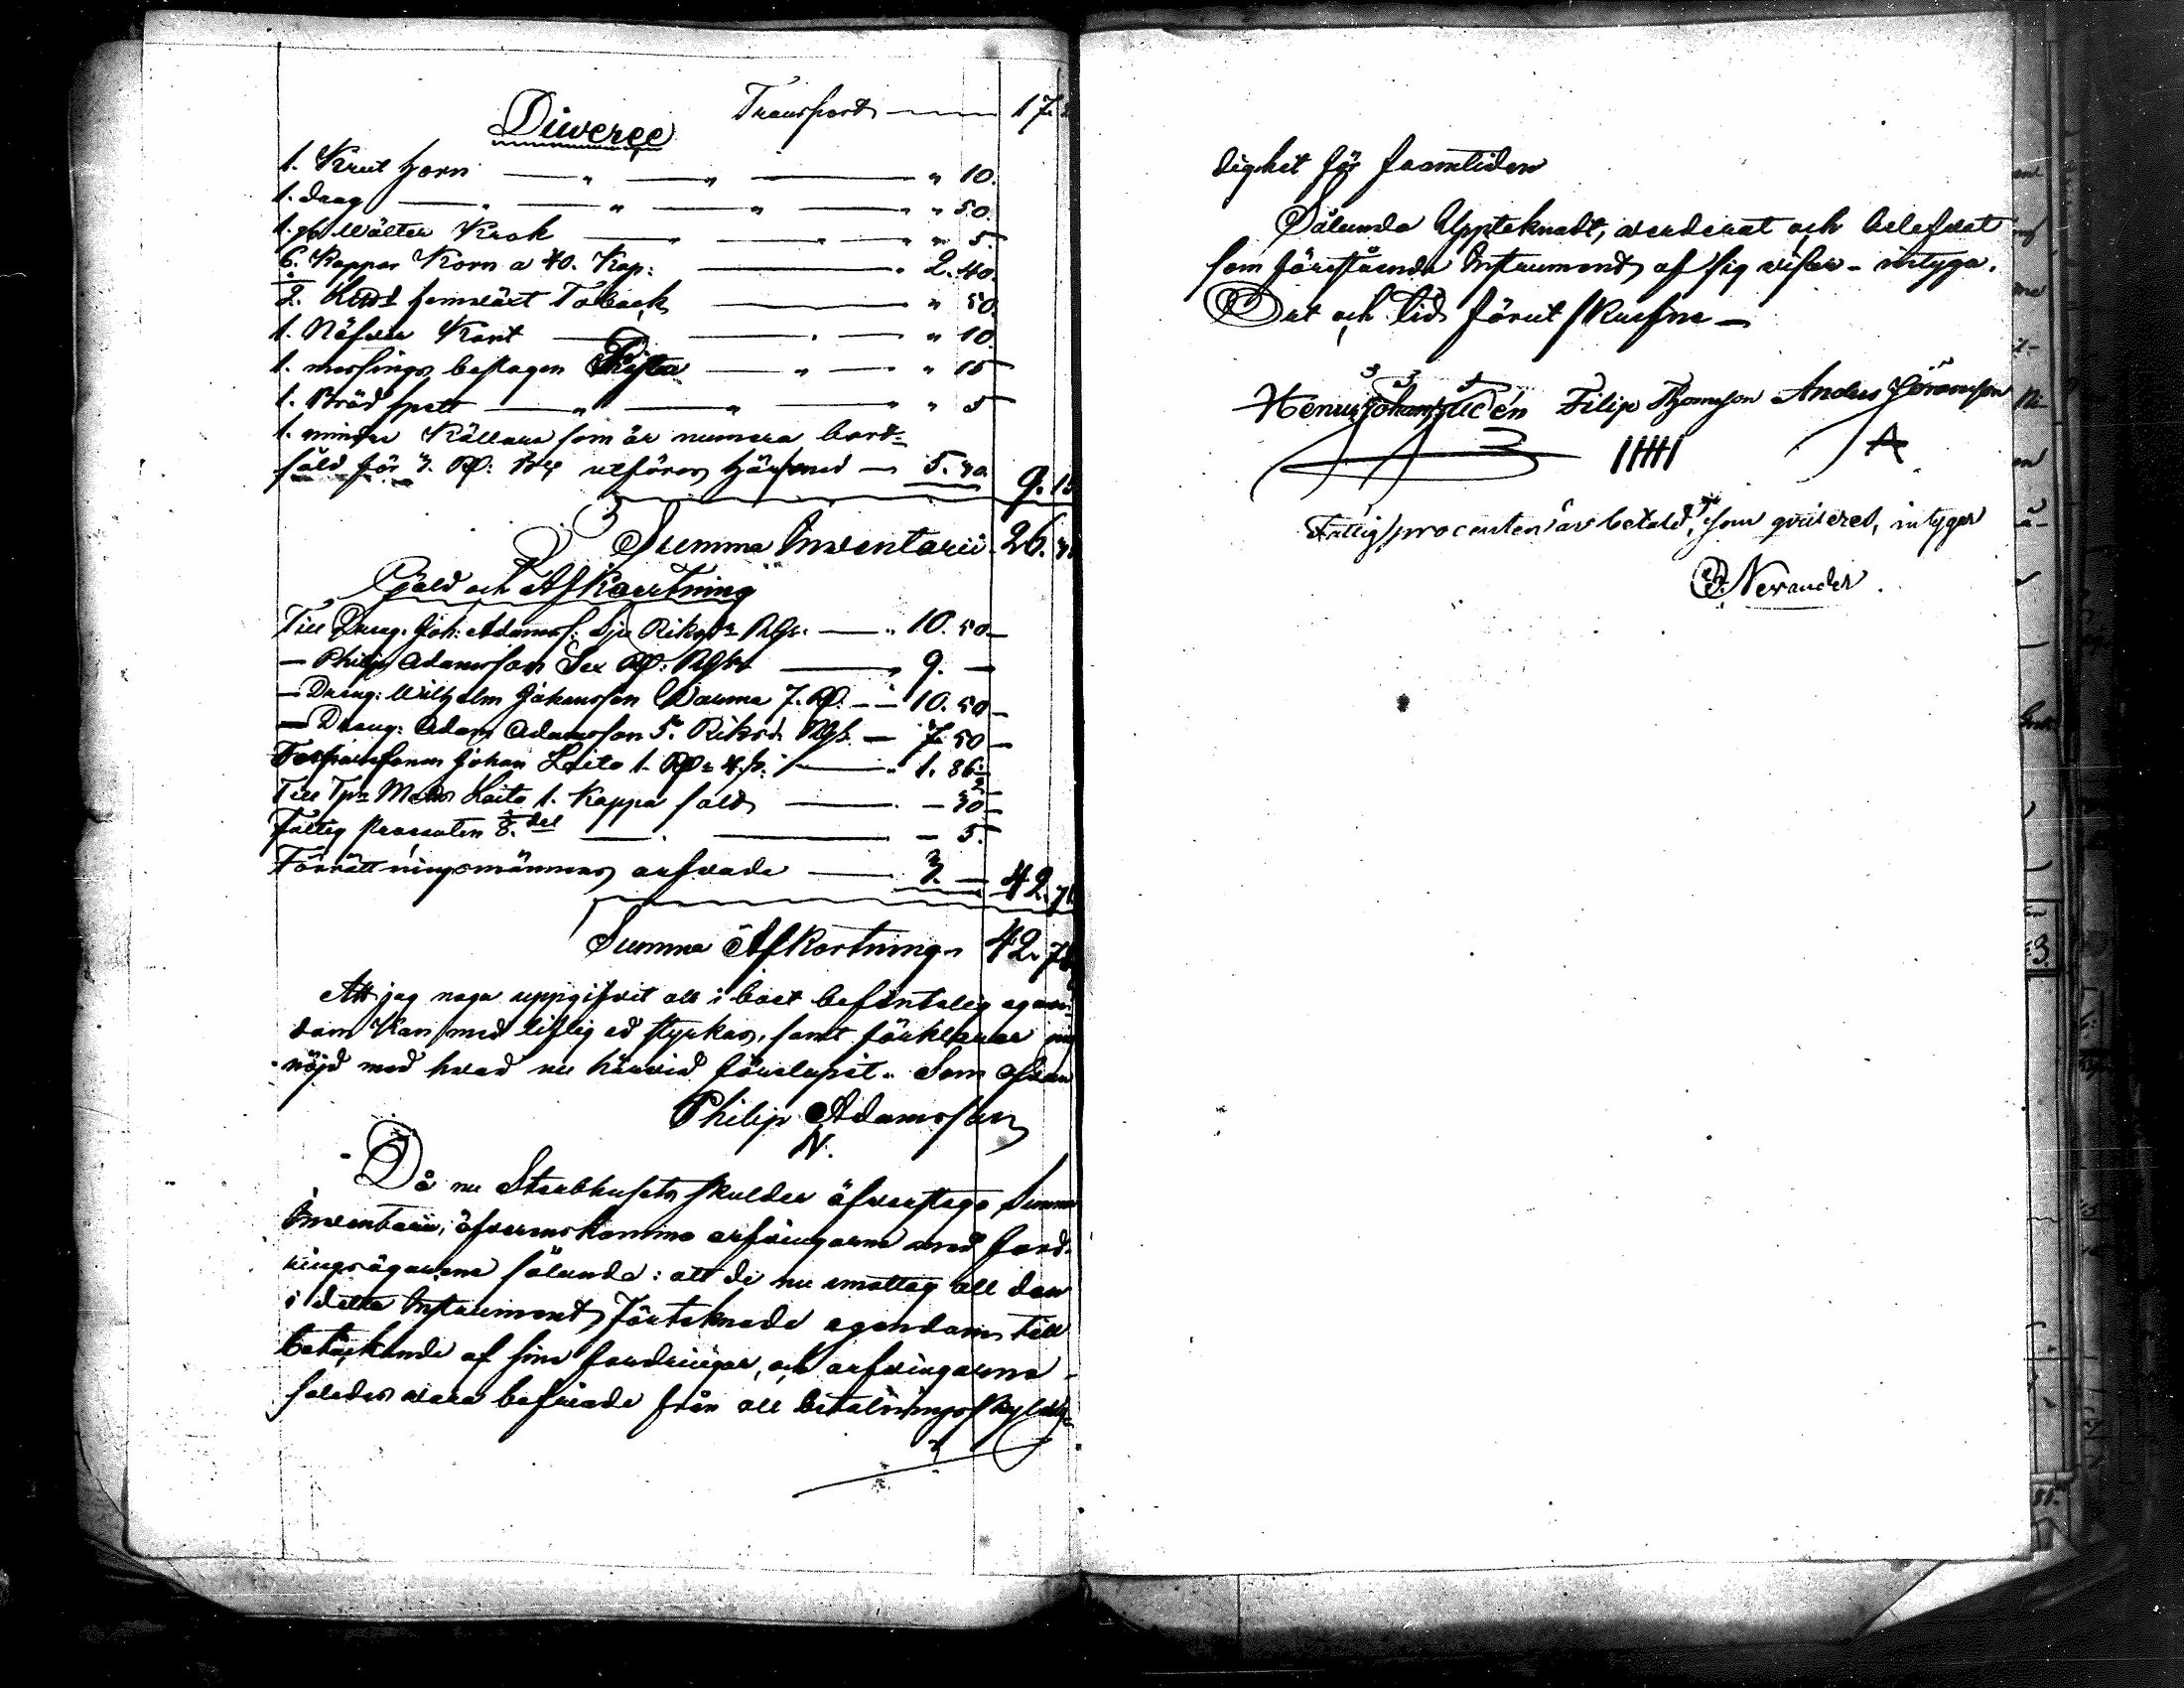 Transport — 17.
Diverse
1. Krut horn — " — " — " 10.
1. drag — " — " — " — " 50.
1. pr Wälter Krok — " — " 5.
6. Kappar Korn a 40. Kop: — " 2.40.
2. hemväxt Toback — " 50.
1. Näfver Kont — " 10.
1. messings beslagen — " — " 15
1. Bröd spett — " — " — " 5
1. mindre Källare som är numera bort-
såld för 3. Rd: utföres härmed — 5.30 9.15
Summa Inventarii 26.
Gjäld och Afkortning
Till Dreng. Joh: Adamss: Sju Riksdr Rgs. — " 10.50—
— Philip Adamsson Sex Rd: Rgs — " 9. —
— Dreng: Wilhelm Johansson Warma 7. Rd. — 10.50—
— Dreng: Adam Adamsson 5. Riksd. Rgs. — 7.50—
Johan Laito 1. Rd — " 1.86
Till Matts Laito 1. Kappa sald — 30—
Fattig Procenten 8. del — — 5.
Förrättningsmännens arfvode — 3. — 42.71
Summa Afkortning " 42.71
Att jag noga uppgifvit all i boet befintelig egen-
dom kan med liflig ed styrkas, samt förklarar mig
nöjd med hvad nu härvid förelupit. Som ofvan
Philip Adamsson
N.
Då nu Sterbhusets skulder öfverstega Summa
Inventarii, öfverenskommo arfvingarne med ford-
ringsägarene sålunda: att de nu emottag all den
i detta Instrument förteknade egendom till
betäckande af sine fordringar, och arfvingarna
således vara befriade från all betalningsskyldig-
dighet för framtiden
Sålunda Upptecknadt, verderat och belefvat
som förestående Instrument af sig visar - intyga.
Ort och tid förut skrefne —
Henric Johan Filip Thomsson Anders Göransson
IIIII A
Fattigprocenten är betald, som qvitteret, intygar
Nerander.